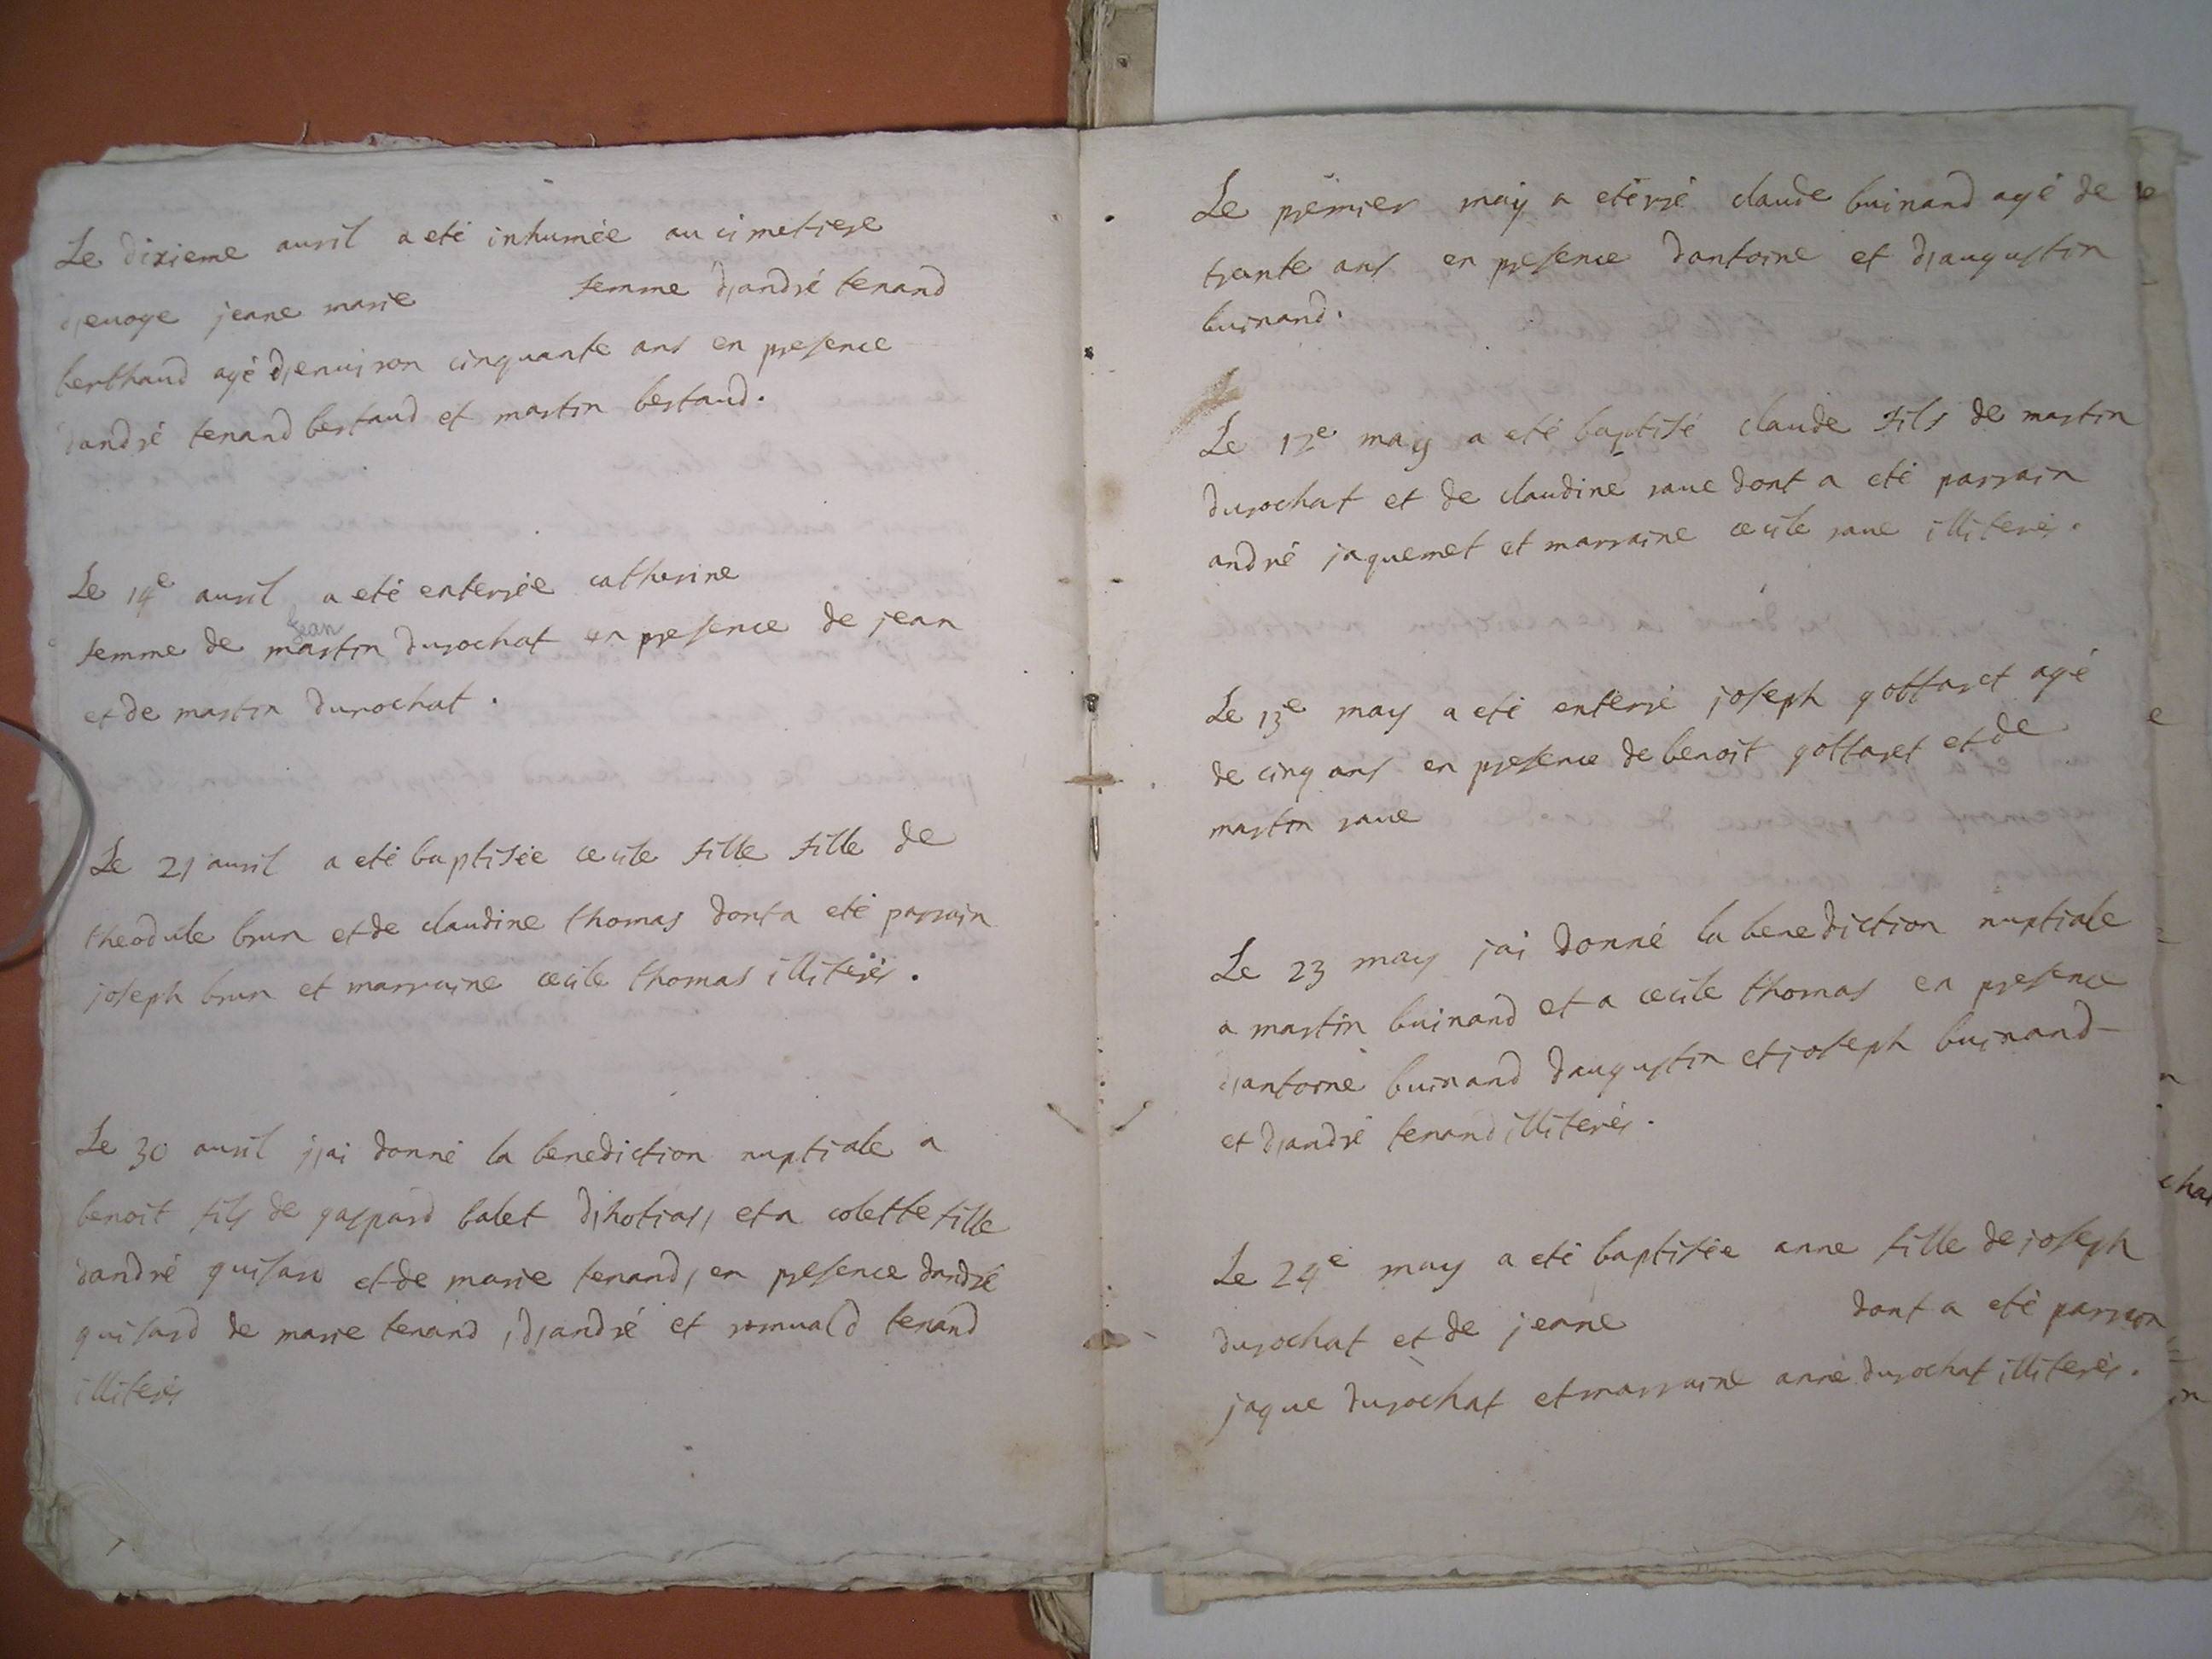 Le dixieme auril a eté inhumée au cimetiere
d'euoge jeane marie femme d'andré tenand
berthaud agé d'enuiron cinquante ans en presence
dandré tenand bertaud et martin bertaud.
Le 14e auril a eté enterrée catherine
jean
femme de martin durochat en presence de jean
et de martin durochat.
Le 21 auril a eté baptisée cecile fille fille de
theodule brun et de claudine thomas dont a eté parrain
joseph brun et marraine cecile thomas illiterés.
Le 30 auril j'ai donné la benediction nuptiale a
benoit fils de gaspard balet d'hotias, et a colette fille
dandré guisard et de marie tenand, en presence dandré
guisard de marie tenand, d'andré et romuald tenand
illiterés
Le premier may a eterré claude buinand agé de
trente ans en presence dantoine et d'augustin
buinand.
Le 12e may a eté baptisé claude fils de martin
durochat et de claudine raue dont a eté parrain
andré jaquemet et marraine cecile raue illiterés.
Le 13e may a eté enterré joseph gottaret agé
de cinq ans en presence de benoit gottaret et de
martin raue
Le 23 may jai donné la benediction nuptiale
a martin buinand et a cecile thomas en presence
d'antoine buinand daugustin et joseph buinand
et d'andré tenand illiterés.
Le 24e may a eté baptisée anne fille de joseph
durochat et de jeane dont a eté parrain
jaque durochat et marraine anne durochat illiterés.